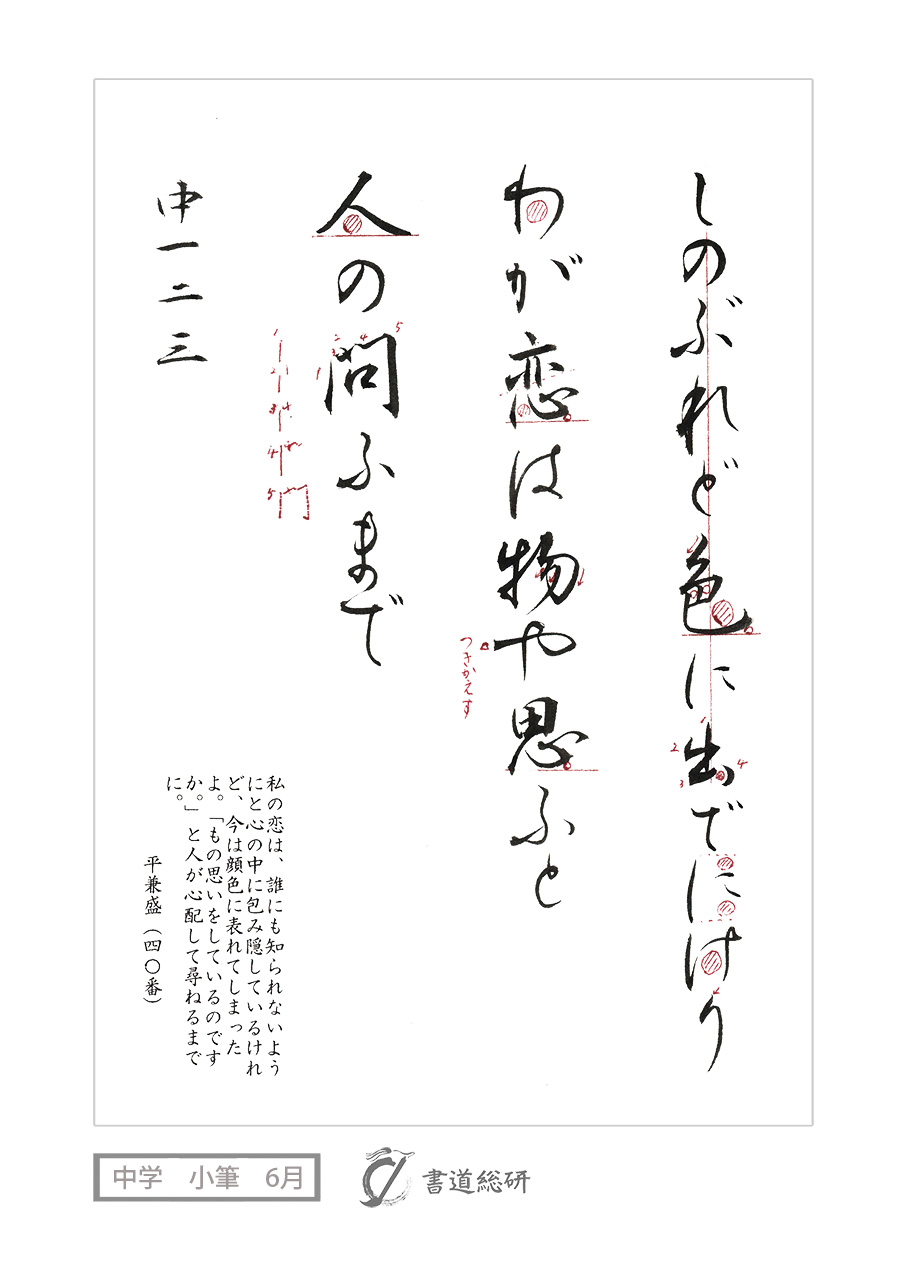 しのぶれど色に出でにけり
わが恋は物や思ふと
つきかえす
人の問ふまで
1 2 3 4 5
1
2
3
4
5
中一二三
私の恋は、誰にも知られないよう
にと心の中に包み隠しているけれ
ど、今は顔色に表れてしまった
よ。「もの思いをしているのです
か。」と人が心配して尋ねるまで
に。
平兼盛(四〇番)
中学 小筆 6月
書道総研